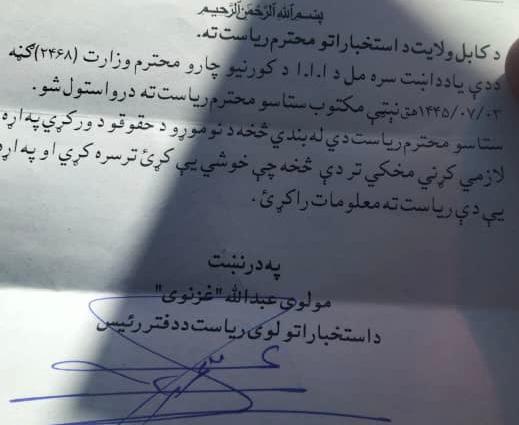 بسم الله الرحمن الرحیم
د کابل ولایت د استخباراتو محترم ریاست ته.
ددې یادداښت سره مل د ا.ا.ا د کورنیو چارو محترم وزارت (۲۴۶۸) ګڼه
۱۴۴۵/۰۷/۰۳ هق نېټې مکتوب ستاسو محترم ریاست ته در واستول شو.
ستاسو محترم ریاست دې له بندي څخه د نوموړو د حقوقو د ورکړې په اړه
لازمي کړنې مخکې تر دې څخه چې خوشي یې کړئ ترسره کړي او په اړه
یې دې ریاست ته معلومات راکړئ.
په درنښت
مولوی عبدالله "غزنوی"
د استخباراتو لوی ریاست د دفتر رئیس